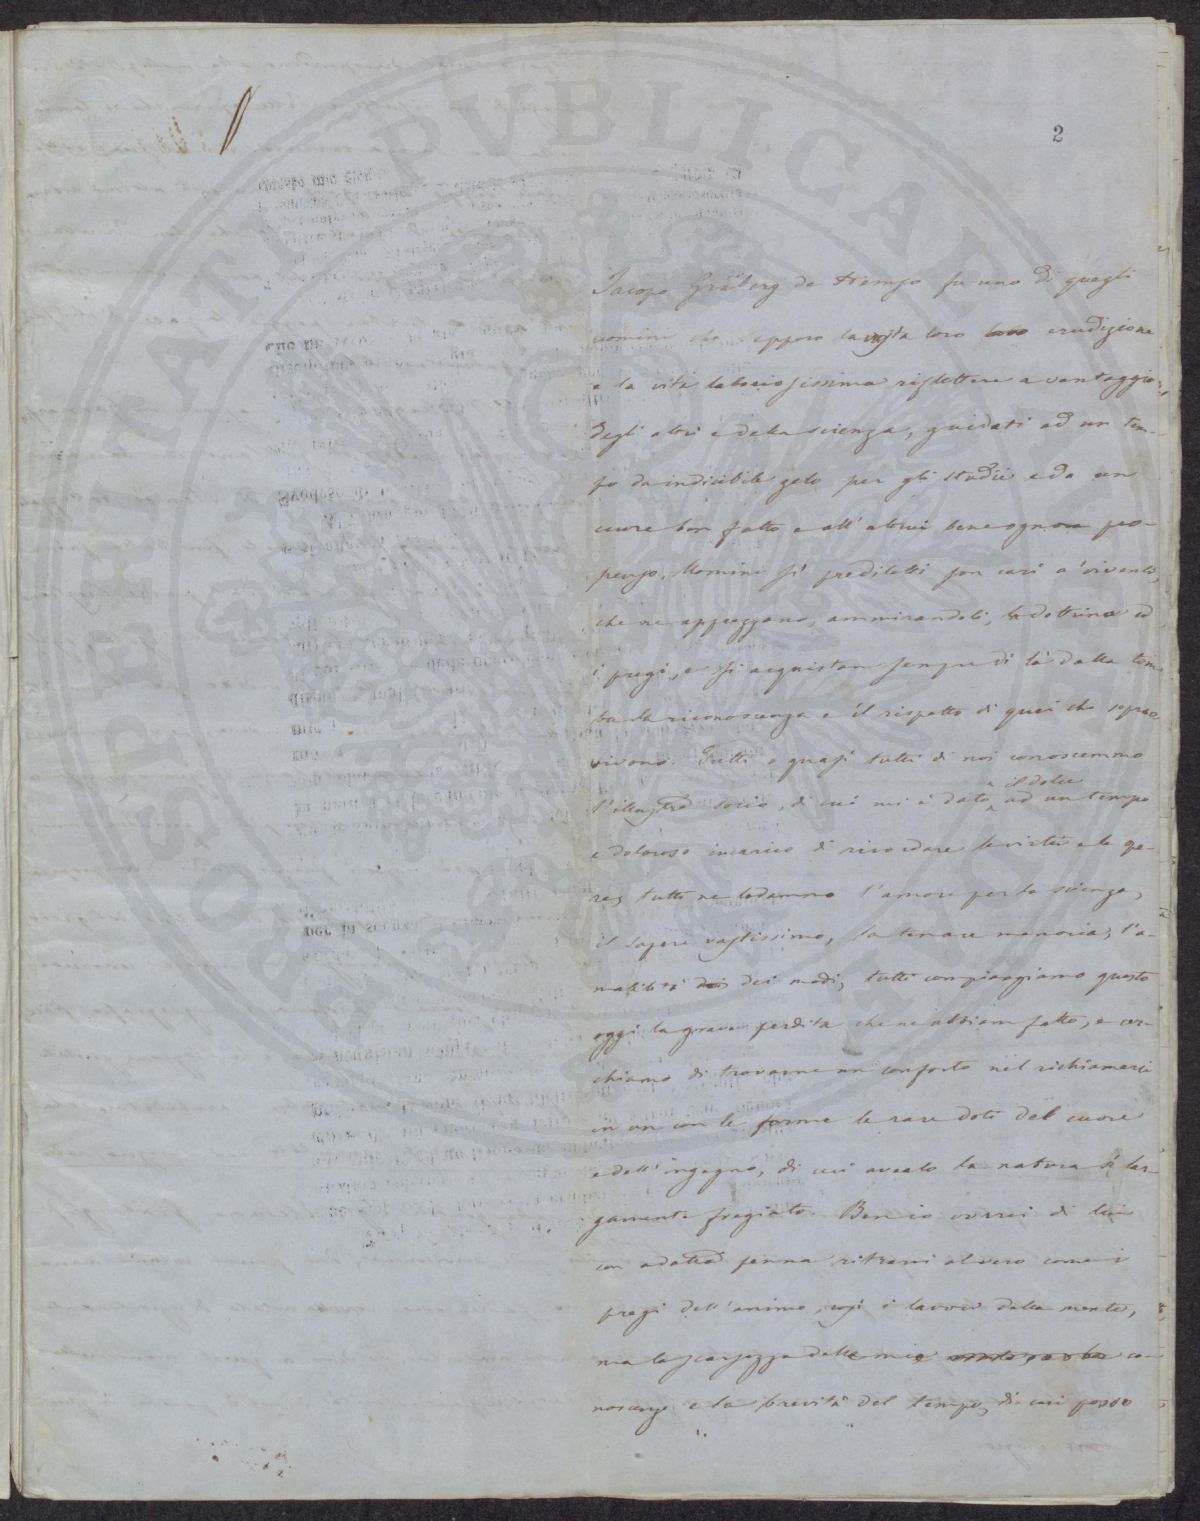 2
Jacopo Gräberg da Hemso fu uno di quegli
uomini che seppero la vasta loro erudizione
e la vita laboriosissima riflettere a vantaggio
degli altri e della scienza, guidati ad un tem-
po da indicibile zelo per gli studii e da un
cuore ben fatto e all' altrui bene ognora pro-
penso. Uomini sì prediletti son cari a' viventi,
che ne apprezzano, ammirandoli, la dottrina ed
i pregi, e si acquistan sempre di là dalla tom-
ba la riconoscenza e il rispetto di quei che sopra-
vivono. Tutti o quasi tutti di noi conoscemmo
l'illustre socio, di cui mi è dato il dolce ad un tempo
e doloroso incarico di ricordare le virtù e le ge-
sta, tutti ne lodammo l'amore per la scienza,
il sapere vastissimo, la tenace memoria, l'a-
mabilità dei modi, tutti compiangiamo questo
oggi la grave perdita che ne abbiam fatto, e cer-
chiamo di trovarne un conforto nel richiamarci
in un con le forme le rare doti del cuore
e dell'ingegno, di cui avealo la natura sì lar-
gamente fregiato. Ben io vorrei di lui
con adatta penna ritrarvi al vero come i
pregi dell'animo, così i lavori della mente,
ma la scarsezza delle mie co-
noscenze e la brevità del tempo, di cui posso
PROSPERITATI PVBLICAE